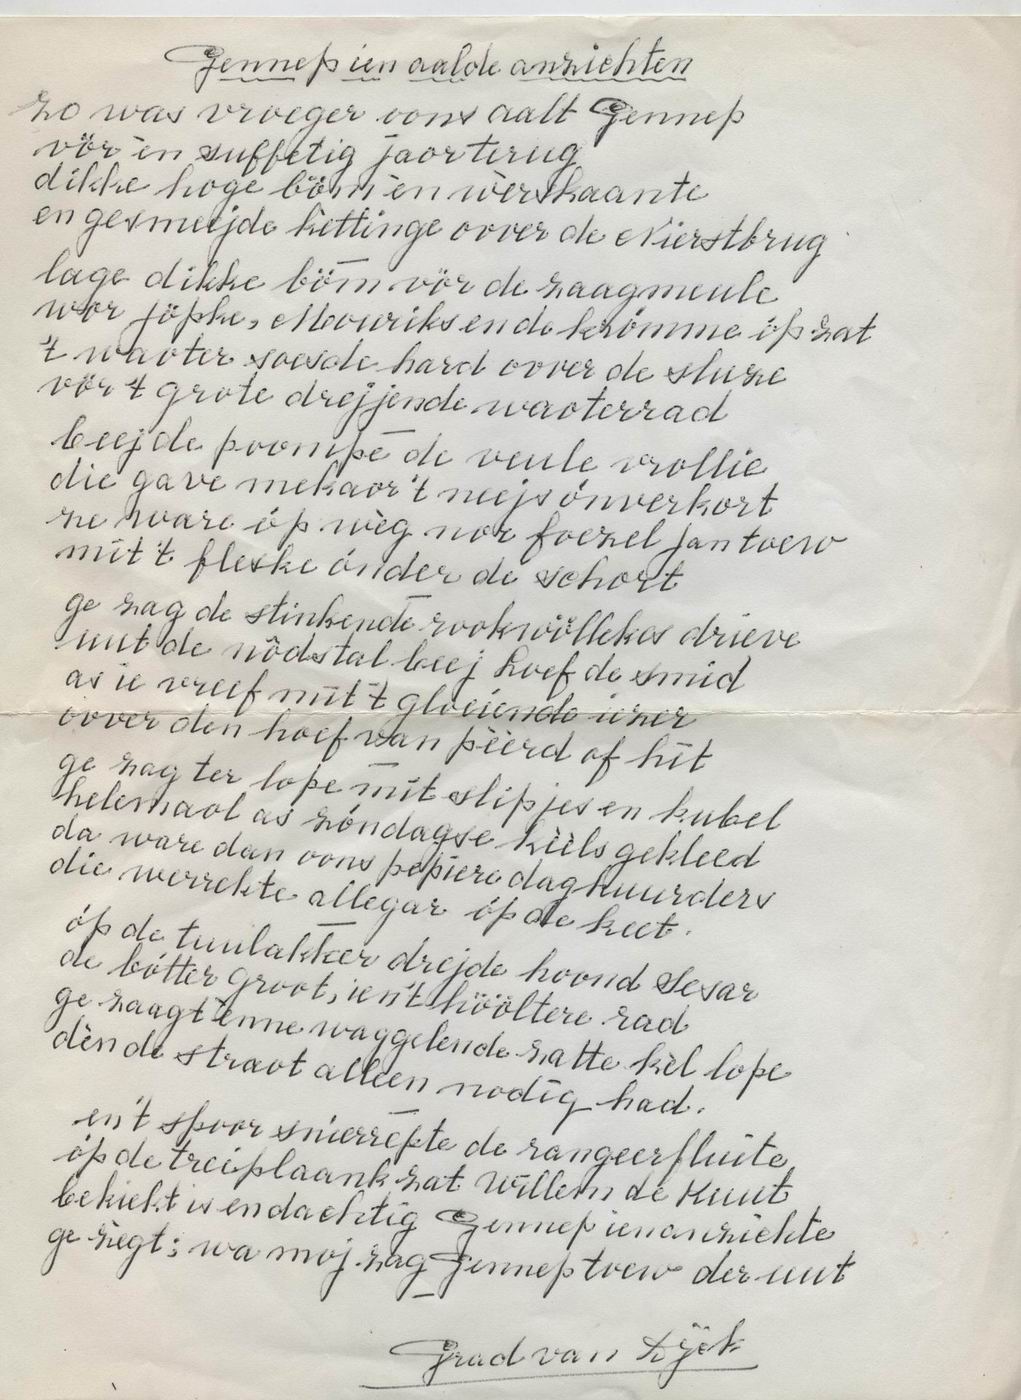 Gennep ien aalde anzichten
zo was vroeger oons aalt Gennep
vör èn suffetig jaor terug
dikke hoge böm èn wèrskaante
en gesmejde kettinge oover de Nierstbrug
lage dikke böm vör de zaagmeule
wor Jöpke, Mouriks en de krómme óp zat
't waoter soesde hard oover de sluze
vör 't grote drejjende waoterrad
beej de poompe de veule vrollie
die gave mekaor 't neejs ónverkort
ze ware óp wèg nor foezel Jan toew
mit 't fleske ónder de schort
ge zag de stinkende rookwöllekes drieve
uut de nödstal beej hoef de smid
as ie vreef mit 't gloeiende iezer
oover den hoef van pèèrd of hit
ge zag ter lope mit slipjes en kubel
helemaol as zóndagse kèèls gekleed
da ware dan oons pepiere daghuurders
die werrekte allegar óp de keet.
óp de tuulakker drejde hoond Sesar
de bótter groot, ien 't hööltere rad
ge zaagt ènne waggelende zatte kèl lope
dèn de straot alleen nodig had.
en 't spoor snierrepte de rangeerfluite
óp de treeplaank zat Willem de Kuut
bekiekt is endachtig Gennep ien anzichte
ge ziegt: wa moj zag Gennep toew der uut
Grad van Dijck